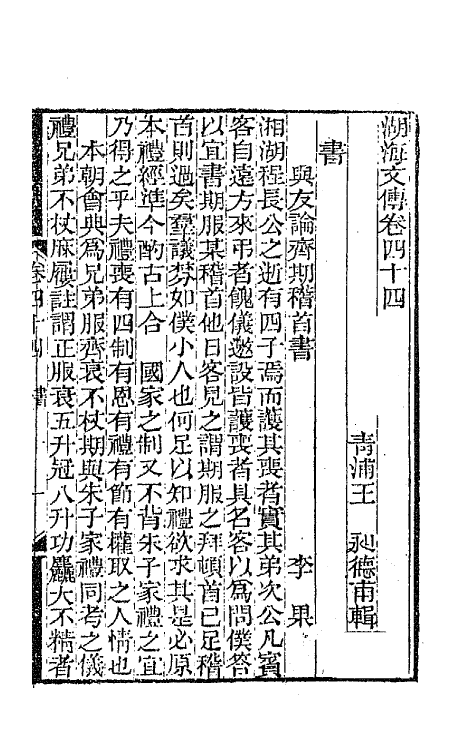 湖海文傳卷四十四
青浦王 昶德甫輯
書
與友論齊期稽首書 李 果
湘湖程長公之逝有四子焉而護其喪者實其弟次公凡賓
客自遠方來弔者餽儀遬設皆護喪者具名客以為問僕答
以宜書期服某稽首他日客見之謂期服之拜頓首已足稽
首則過矣羣議棼如僕小人也何足以知禮欲求其是必原
本禮經準今酌古上合 國家之制又不背朱子家禮之宜
乃得之乎夫禮喪有四制有恩有禮有節有權取之人情也
本朝會典為兄弟服齊衰不杖期與朱子家禮同考之儀
禮兄弟不杖麻屨註謂正服衰五升冠八升功麤大不精者
卷四十四 書 一